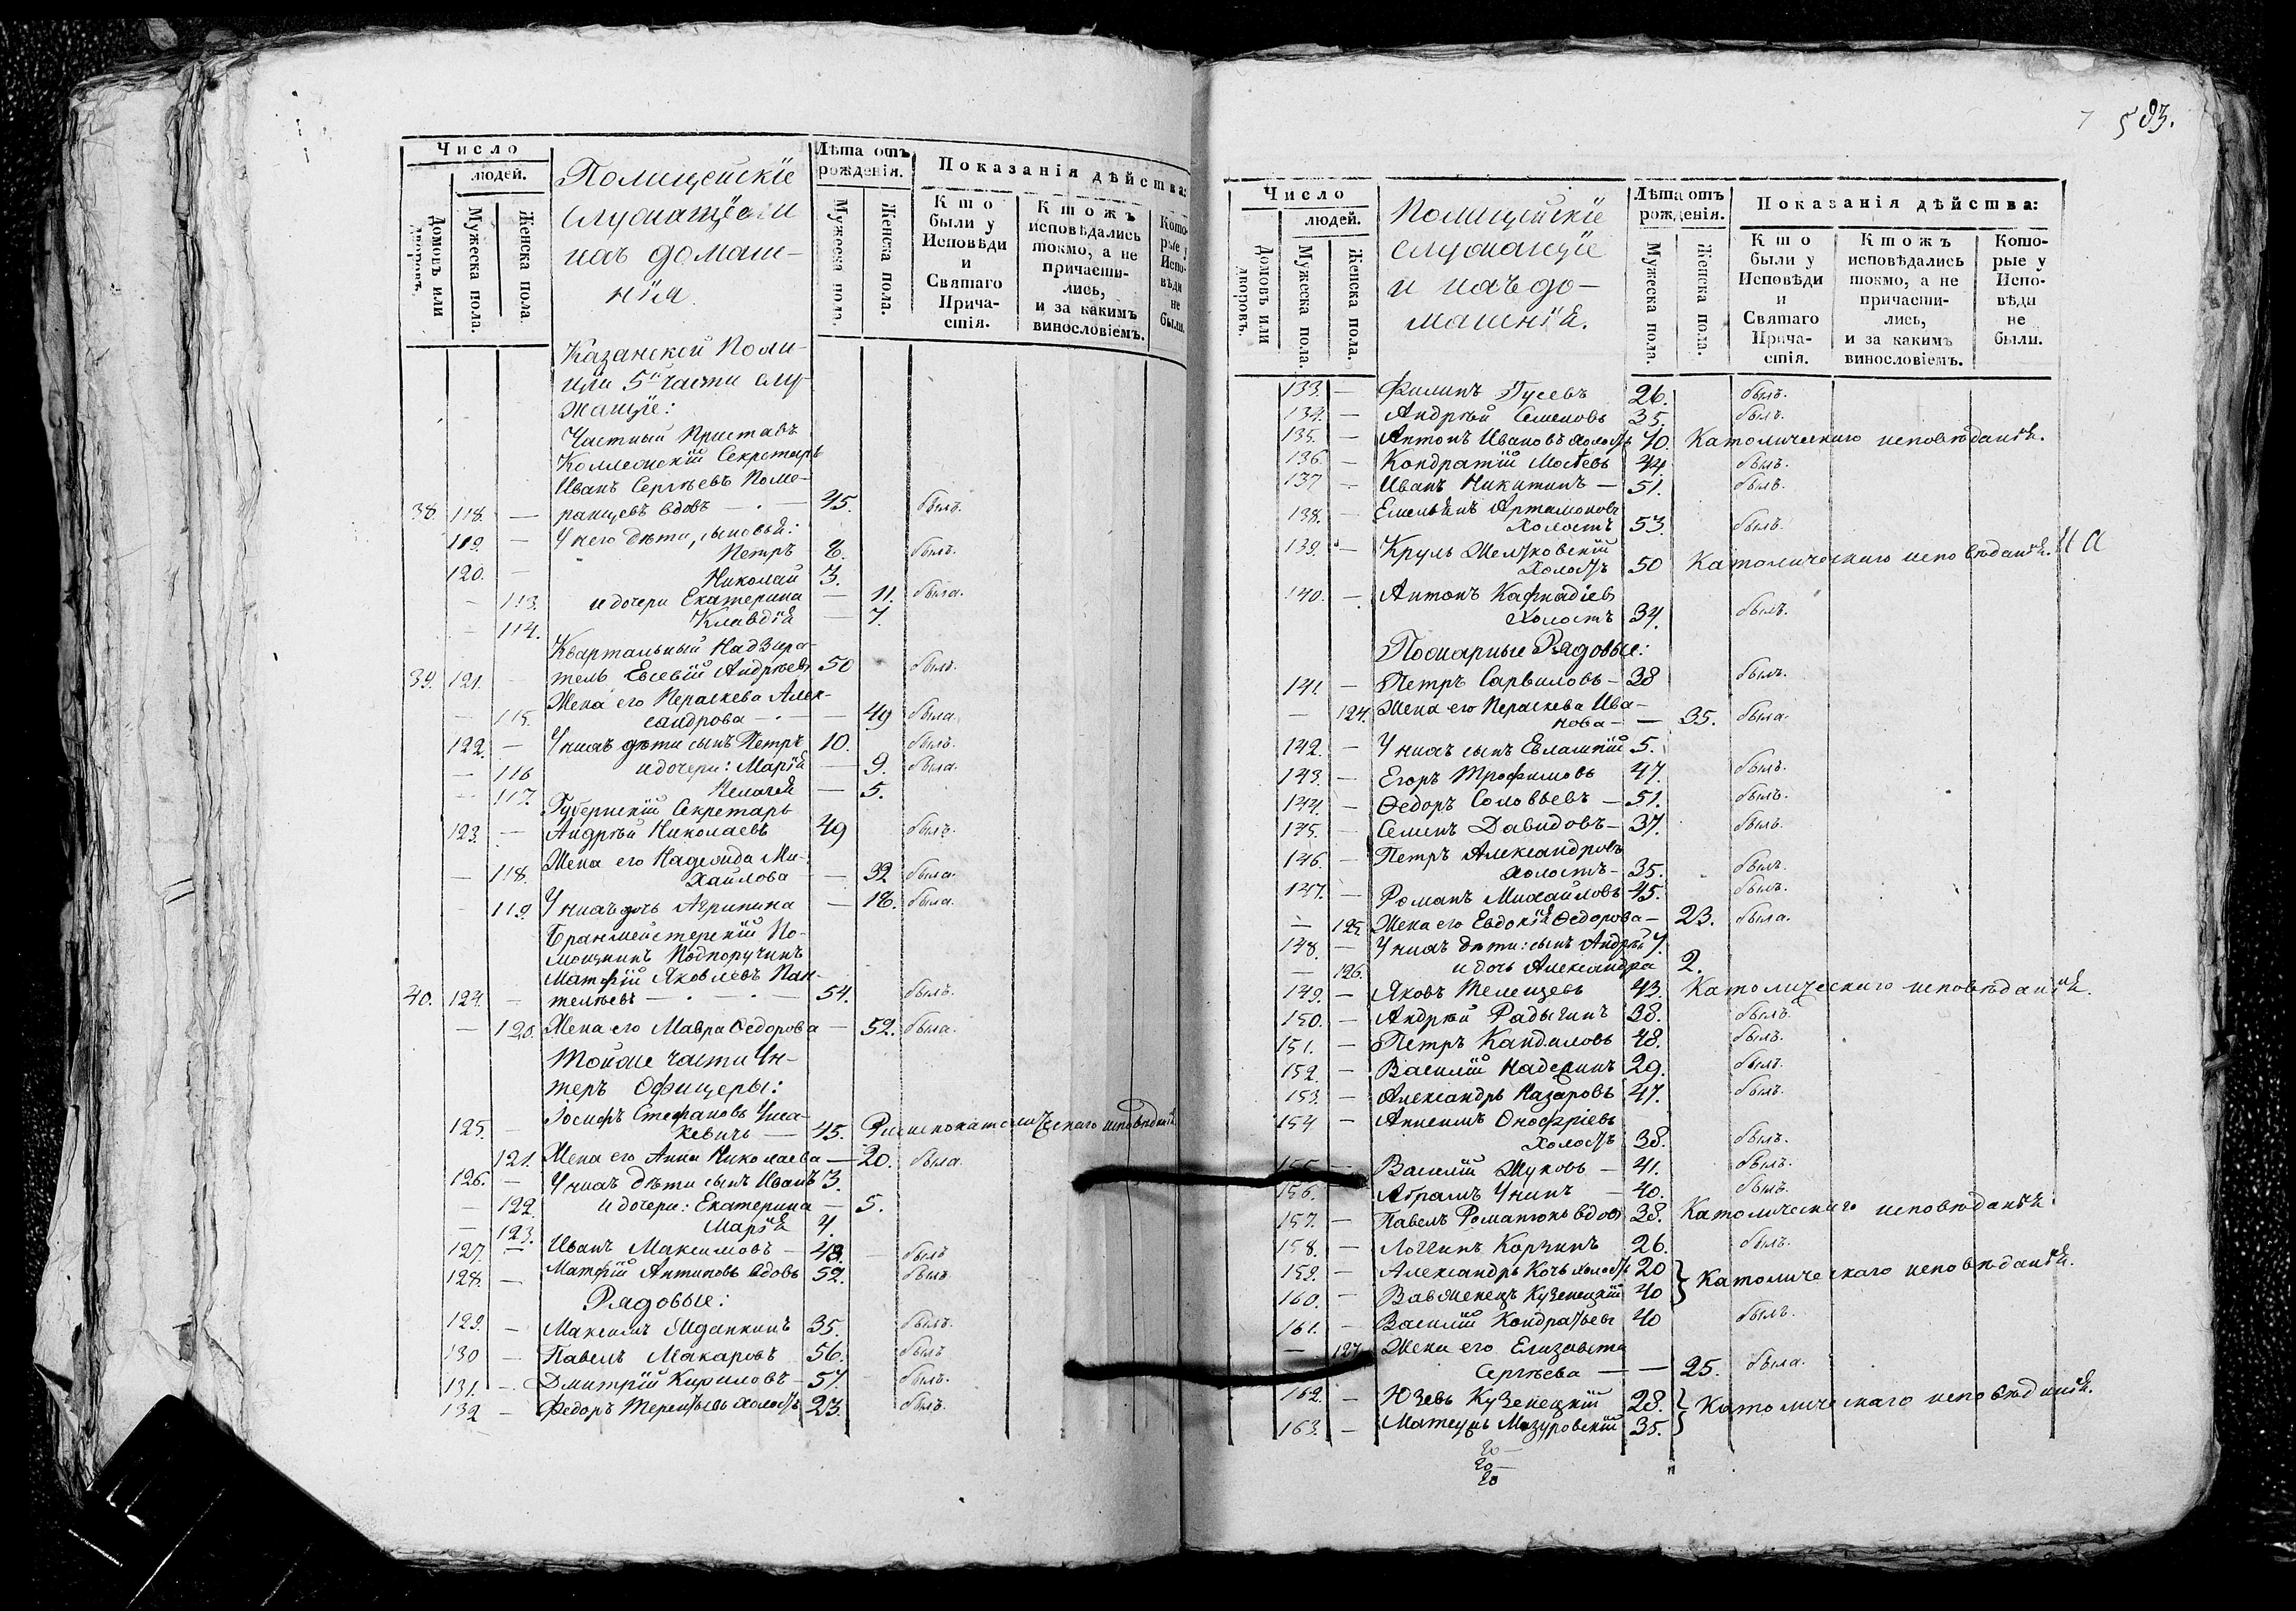 Число
людей.
Домовъ или дворовъ.
Мужеска пола.
Женска пола.
Полицейскіе
служащіе и
ихъ домаш-
нія.
Лѣта отъ
рожденія.
Мужеска пола.
Женска пола.
Показанія дѣйства:
Кто
были у
Исповѣди
и
Святаго
Прича-
стія.
Ктожъ
исповѣдались
токмо, а не
причасти-
лись,
и за какимъ
винословіемъ.
Кото-
рые у
Испо-
вѣди
не
были.
Казанской Поли-
ціи 5й части слу-
жащіе:
Частный Приставъ
Коллежскій Секретарь
Иванъ Сергѣевъ Поме-
38. 118. — ранцевъ вдовъ — 45. былъ.
119. — У него дѣти, сыновья:
Петръ 8. былъ.
120. — Николай 3.
— 113. и дочери Екатерина — 11. была.
— 114. Клавдія — 7.
Квартальный Надзира-
39. 121. — тель Евсевій Андреевъ 50 былъ.
Жена его Пераскева Алек-
— 115. сандрова — — 49 была.
122. — У нихъ дѣти сынъ Петръ 10. былъ.
— 116 и дочери: Марія — 9. была.
— 117. Пелагея — 5.
Губернскій Секретарь
123. — Андрей Николаевъ 49 былъ.
Жена его Надежда Ми-
— 118. хайлова — 39. была.
— 119. У нихъ дочь Агрипина — 18. была.
Бранмейстерскій По-
мощникъ Подпоручикъ
Матфій Яковлевъ Пан-
40. 124. — телѣевъ — 54. былъ.
— 120. Жена его Мавра Ѳедорова — 52. была.
Тойже части Ун-
теръ Офицеры:
Іосифъ Стефановъ
125. — кевичь — 45. Римскокатолическаго исповѣданія
121. Жена его Анна Николаева — 20. была.
126. — У нихъ дѣти сынъ Иванъ 3.
— 122. и дочери: Екатерина — 5.
— 123. Марія 4.
127. — Иванъ Максимовъ — 43. — былъ
128. — Матфій Антиповъ вдовъ 52. былъ.
Рядовые:
129. — Максимъ Ждanкинъ 35. былъ.
130 — Павелъ Макаровъ 56. былъ
131. — Дмитрій Кириловъ — 57. былъ.
132 — Федоръ Терентьевъ холостъ 23. былъ.
583.
Число
людей.
Домовъ или дворовъ.
Мужеска пола.
Женска пола.
Полицейскіе
служащіе
и ихъ до-
машнія.
Лѣта отъ
рожденія.
Мужеска пола.
Женска пола.
Показанія дѣйства:
Кто
были у
Исповѣди
и
Святаго
Прича-
стія.
Ктожъ
исповѣдались
токмо, а не
причасти-
лись,
и за какимъ
винословіемъ.
Кото-
рые у
Испо-
вѣди
не
были.
133. — Филипъ Гусевъ 26. былъ.
134. — Андрей Семеновъ 35. былъ.
135. — Антонъ Ивановъ холостъ 40. Католическаго исповѣданія.
136. — Кондратій Мосеевъ 44. былъ.
137 — Иванъ Никитинъ — 51. былъ.
138. — Емельянъ Артамоновъ
Холостъ 53. былъ.
139. — Круль
Холостъ 50 Католическаго исповѣданія.
140. — Антонъ
Холостъ 34. былъ.
Пожарные Рядовые:
141. — Петръ Сарвиловъ — 38 былъ.
— 124. Жена его Пераскева Ива-
нова — — 35. была.
142. — У нихъ сынъ Евлампій 5.
143. — Егоръ Трофимовъ 47. былъ.
144. — Ѳедоръ Соловьевъ — 51. былъ.
145. — Семенъ Давидовъ — 37. былъ.
146. — Петръ Александровъ
холостъ — 35. былъ.
147. — Романъ Михайловъ 45. былъ.
— 125. Жена его Евдокія Ѳедорова — 23. была.
148. — У нихъ дѣти: сынъ Андрей 4.
— 126. и дочь Александра 2.
149. — Яковъ Телещевъ 43. Католическаго исповѣданія.
150. — Андрей Радыгинъ 38. былъ.
151. — Петръ Кандиловъ 48. былъ.
152. — Василій 29. былъ.
153. — Александръ Назаровъ 47. былъ.
154 — Анисимъ Онофріевъ
холостъ 38. былъ.
155. — Василій Жуковъ — 41. былъ.
156. — Абрамъ — 40. былъ.
157. — Павелъ Романюкъ вдовъ 38. Католическаго исповѣданія
158. — Логгинъ Корчинъ 26. былъ.
159. — Александръ Кочъ холостъ 20 } Католическаго исповѣданія.
160. — Вавженецъ Кузенецкій 40
161. — Василій Кондратьевъ 40 былъ.
— 127. Жена его Елизавета
Сергѣева — — 25. была.
162. — Юзевъ Кузенецкій 28. } Католическаго исповѣданія.
163. — Матеушъ Мазуровскій 35.